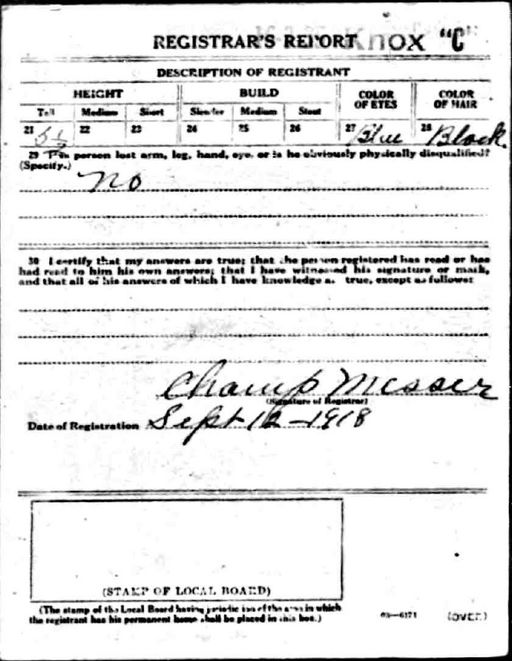 REGISTRAR'S REPORT Knox "C"
DESCRIPTION OF REGISTRANT
HEIGHT BUILD COLOR OF EYES COLOR OF HAIR
Tall Medium Short Slender Medium Stout
21 22 23 24 25 26 27 Blue 28 Black.
29 person lost arm, leg, hand, eye, or is he obviously physically disqualified?
(Specify.)
No
30 I certify that my answers are true; that the person registered has read or has
had read to him his own answers; that I have witnessed his signature or mark,
and that all of his answers of which I have knowledge are true, except as follows:
Champ Messer
(Signature of Registrar)
Date of Registration Sept 12-1918
(STAMP OF LOCAL BOARD)
(The stamp of the Local Board having jurisdiction of the area in which
the registrant has his permanent home shall be placed in this box.)
03—6171 (OVER)